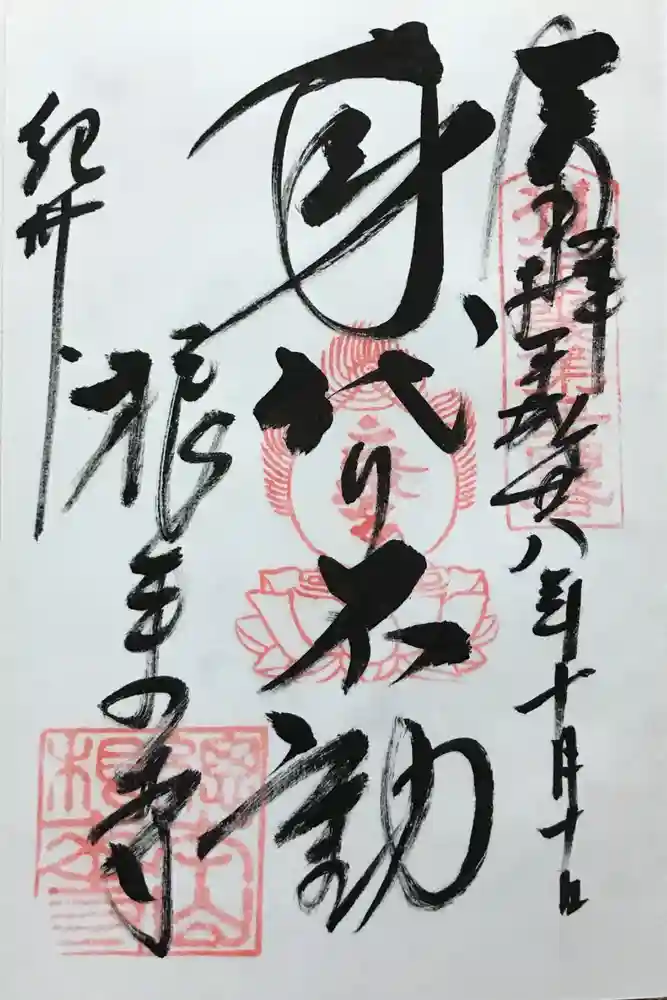 奉拝 平成廿八年十月十日
身代り不動
紀州 根来寺